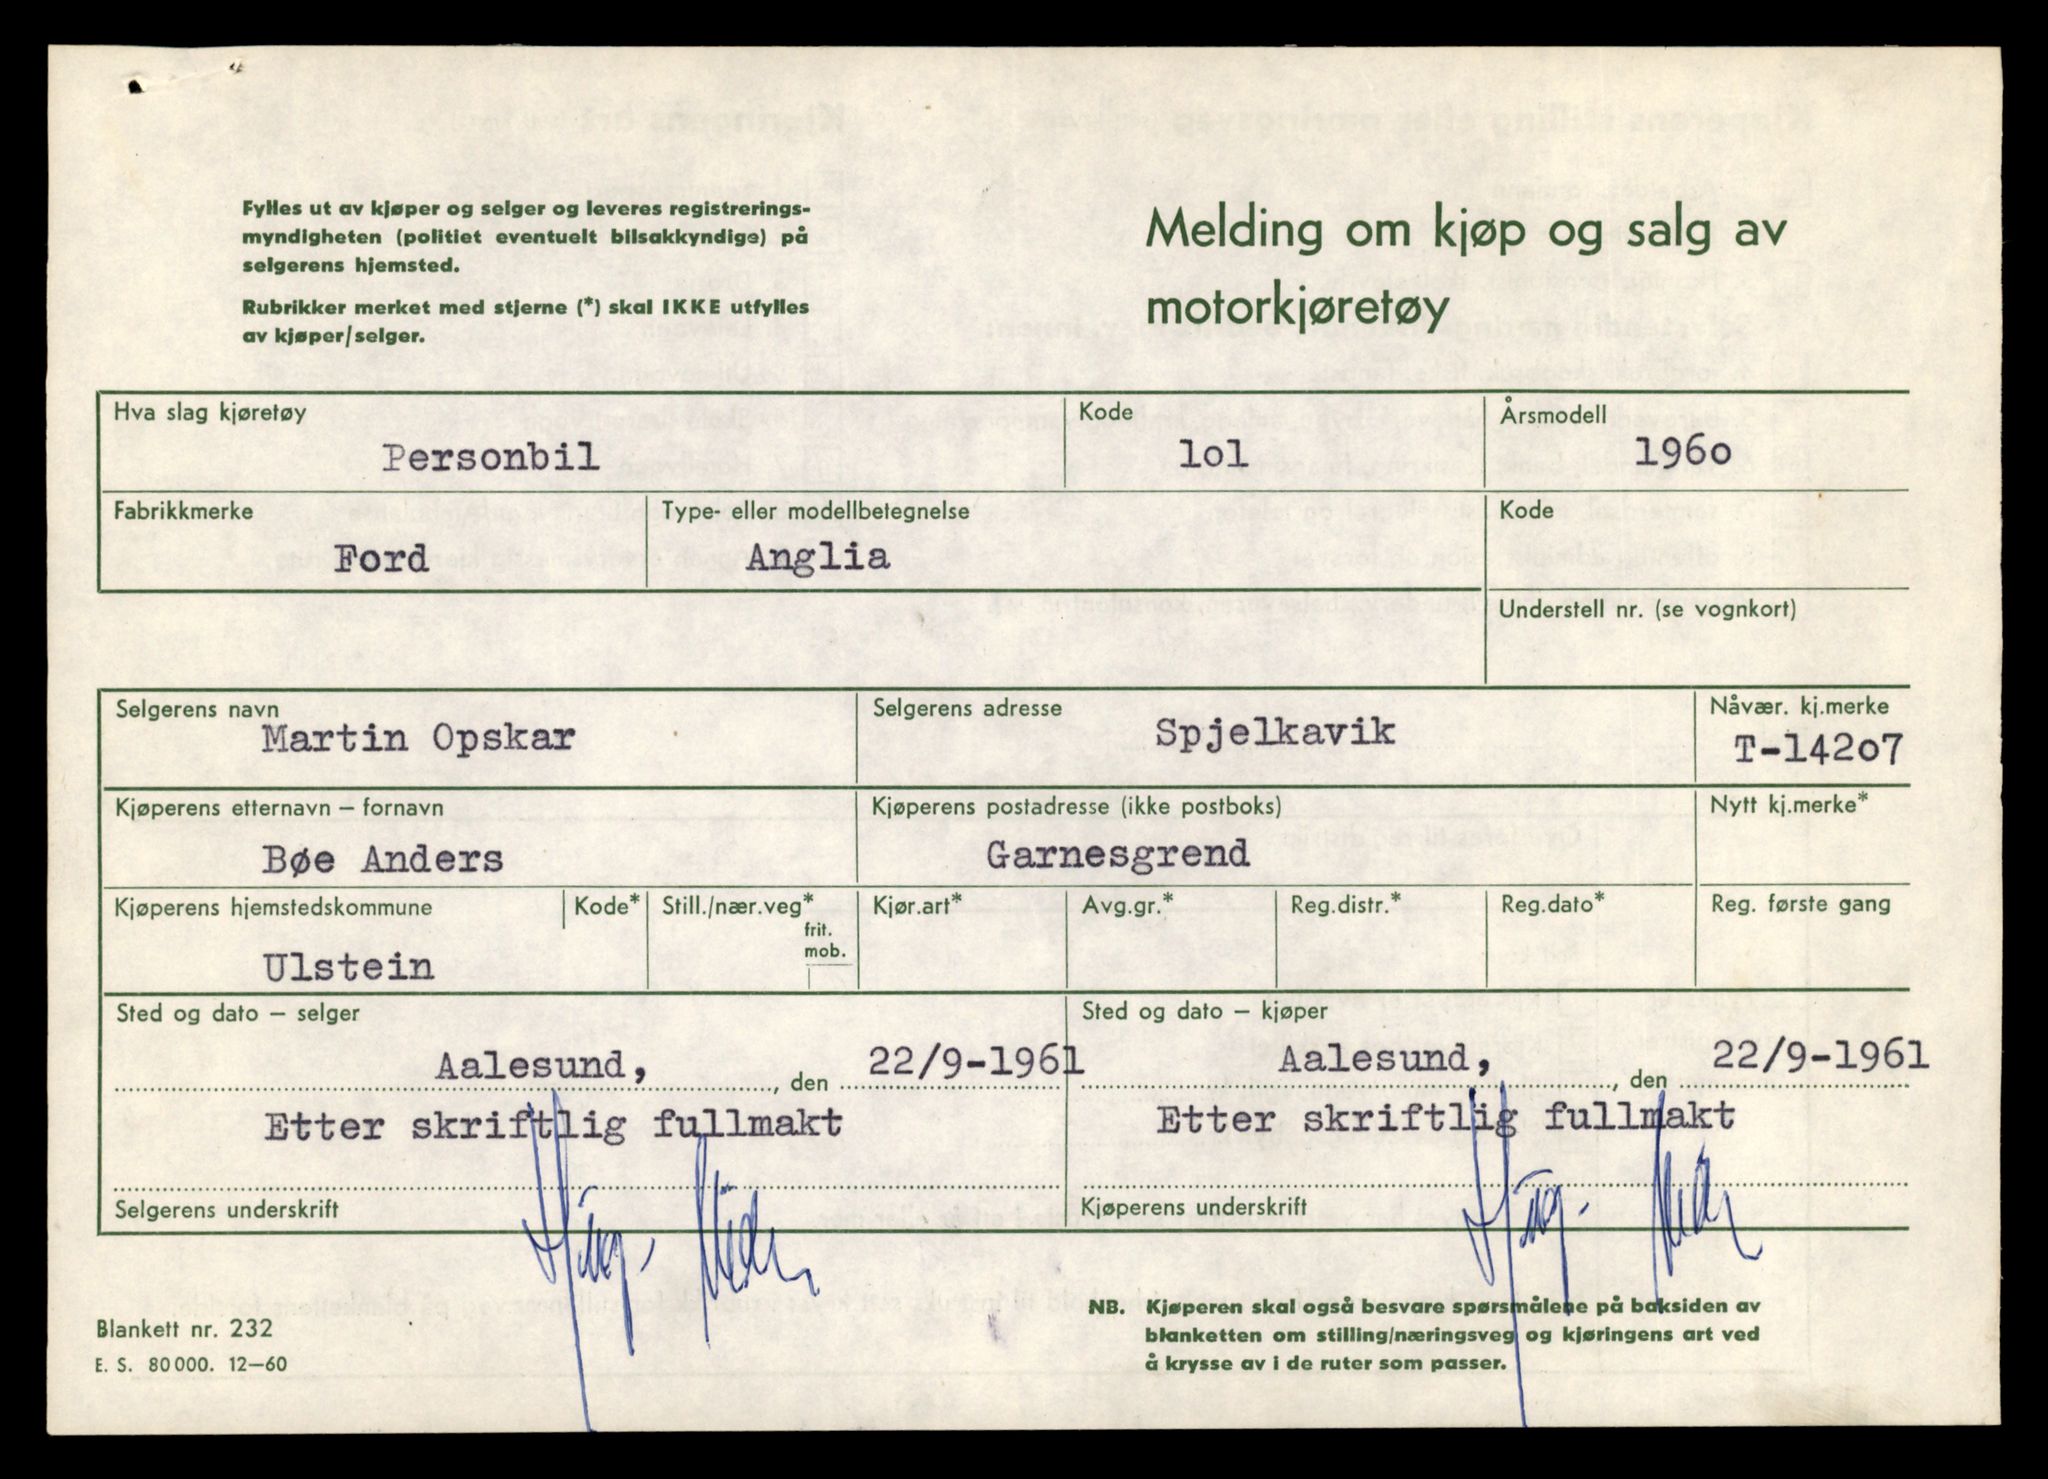 Fylles ut av kjøper og selger og leveres registrerings-
myndigheten (politiet eventuelt bilsakkyndige) på
selgerens hjemsted.
Rubrikker merket med stjerne (*) skal IKKE utfylles
av kjøper/selger.
Melding om kjøp og salg av
motorkjøretøy
Hva slag kjøretøy
Personbil
Kode
lol
Årsmodell
196o
Fabrikkmerke
Ford
Type- eller modellbetegnelse
Anglia
Kode
Understell nr. (se vognkort)
Selgerens navn
Martin Opskar
Selgerens adresse
Spjelkavik
Nåvær. kj.merke
T-142o7
Kjøperens etternavn – fornavn
Bøe Anders
Kjøperens postadresse (ikke postboks)
Garnesgrend
Nytt kj.merke*
Kjøperens hjemstedskommune
Ulstein
Kode*
Still./nær.veg*
frit.
mob.
Kjør.art*
Avg.gr.*
Reg.distr.*
Reg.dato*
Reg. første gang
Sted og dato – selger
Aalesund, , den 22/9-1961
Etter skriftlig fullmakt
Selgerens underskrift
Sted og dato – kjøper
Aalesund, , den 22/9-1961
Etter skriftlig fullmakt
Kjøperens underskrift
Blankett nr. 232
E. S. 80 000. 12–60
NB. Kjøperen skal også besvare spørsmålene på baksiden av
blanketten om stilling/næringsveg og kjøringens art ved
å krysse av i de ruter som passer.